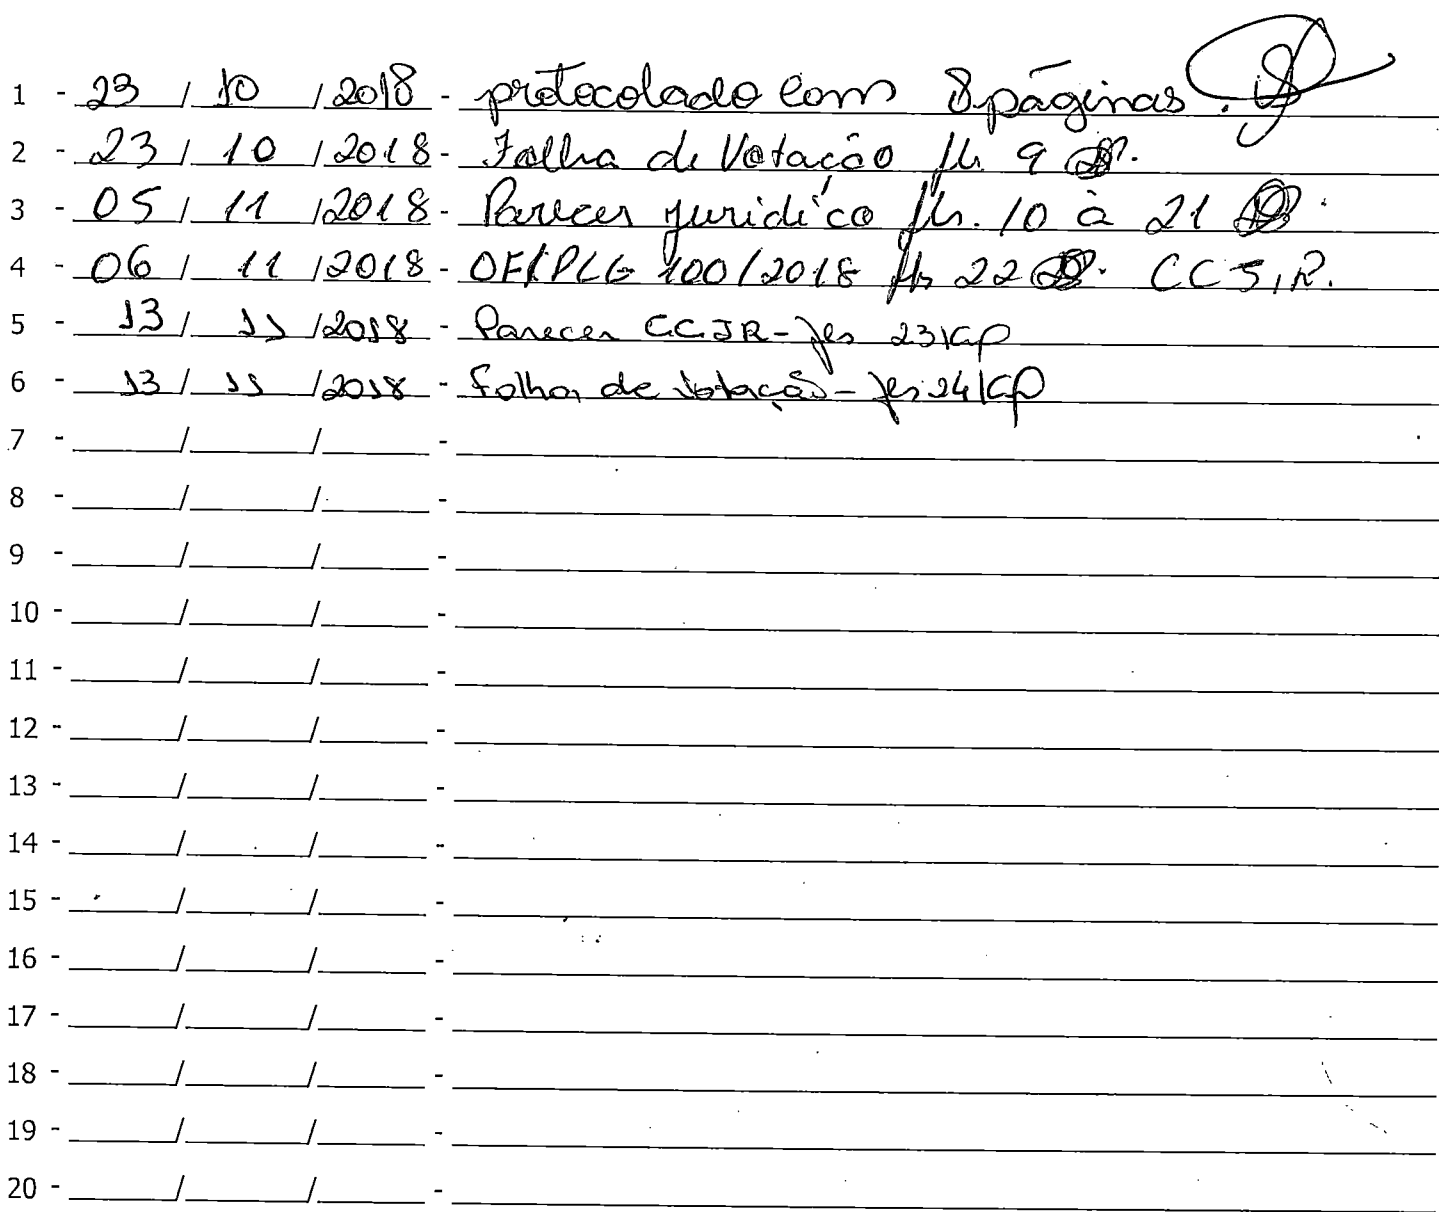 1 - 23 / 10 / 2018 - protocolado com 8 páginas.
2 - 23 / 10 / 2018 - Folha de Votação fls. 9
3 - 05 / 11 / 2018 - Parecer jurídico fls. 10 à 21
4 - 06 / 11 / 2018 - OF/PLG 100/2018 fls 22 CCJ,R.
5 - 13 / 11 / 2018 - Parecer CCJR - fls 23
6 - 13 / 11 / 2018 - Folha de Votação - fls 24
7 - ____/____/____ -
8 - ____/____/____ -
9 - ____/____/____ -
10 - ____/____/____ -
11 - ____/____/____ -
12 - ____/____/____ -
13 - ____/____/____ -
14 - ____/____/____ -
15 - ____/____/____ -
16 - ____/____/____ -
17 - ____/____/____ -
18 - ____/____/____ -
19 - ____/____/____ -
20 - ____/____/____ -